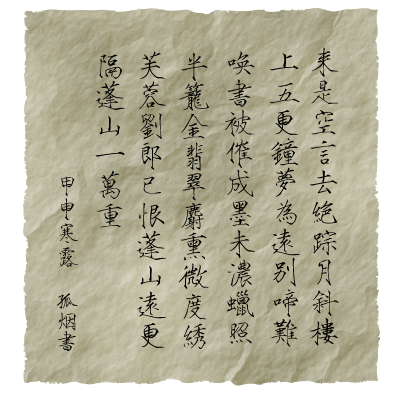 来是空言去絶踪月斜樓
上五更鐘夢為遠别啼難
喚書被催成墨未濃蠟照
半籠金翡翠麝熏微度綉
芙蓉劉郎已恨蓬山遠更
隔蓬山一萬重
甲申寒露 孤烟書